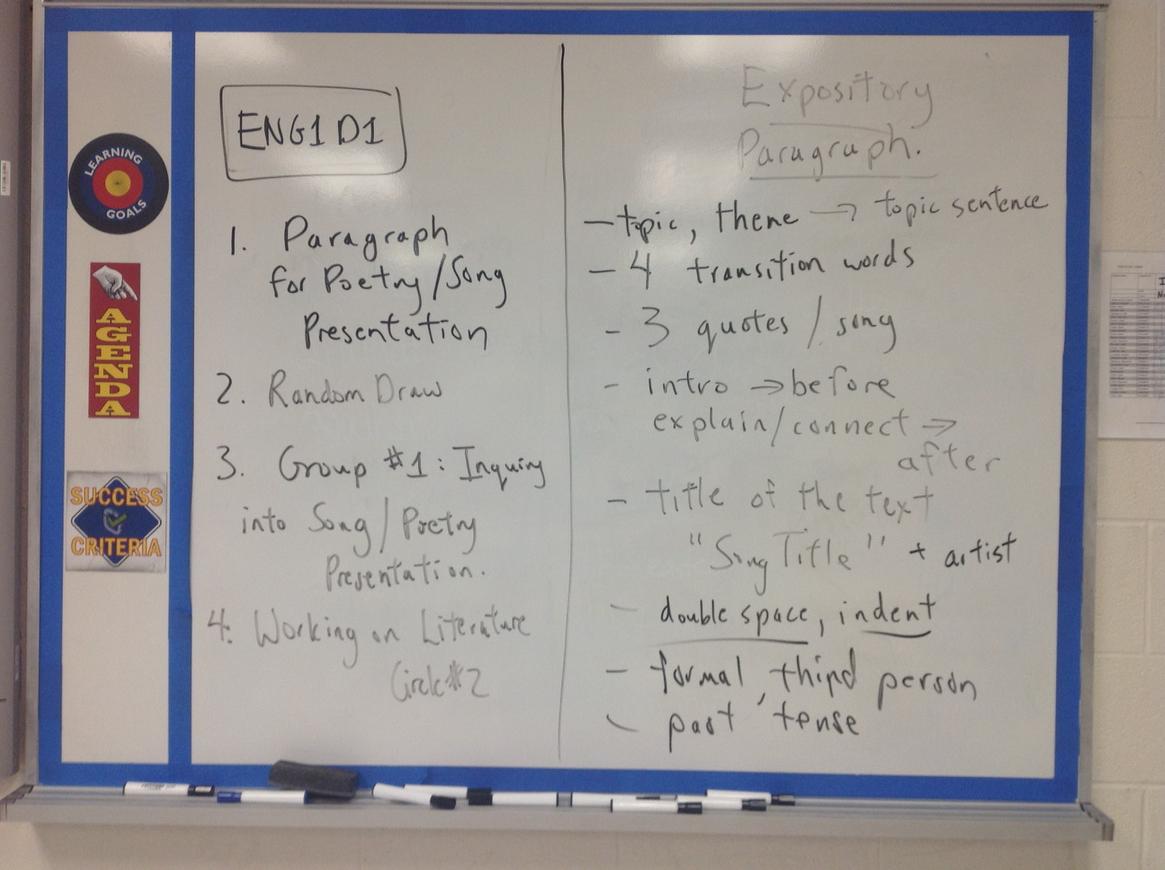 LEARNING
GOALS
AGENDA
SUCCESS
CRITERIA
ENG1D1
1. Paragraph
for Poetry/Song
Presentation
2. Random Draw
3. Group #1: Inquiry
into Song/Poetry
Presentation.
4. Working on Literature
Circle #2
Expository
Paragraph.
- topic, theme → topic sentence
- 4 transition words
- 3 quotes / song
- intro → before
explain/connect →
after
- title of the text
"Song Title" + artist
- double space, indent
- formal, third person
- past tense